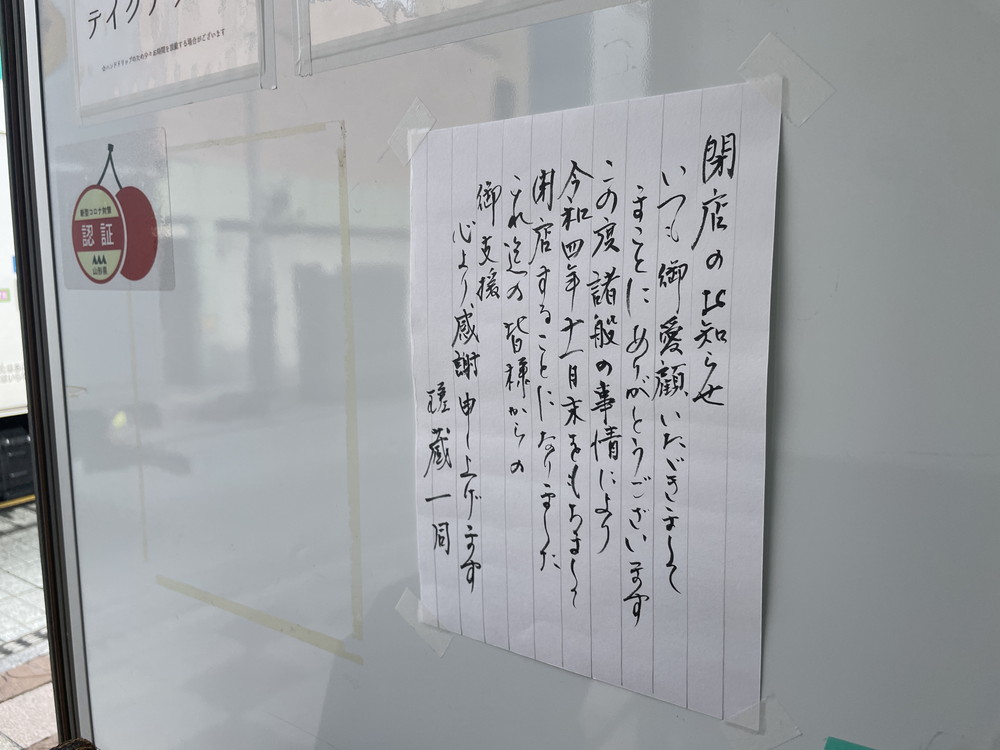 閉店のお知らせ
いつも御愛顧いただきまして
まことにありがとうございます
この度諸般の事情により
今和四年十一月末をもちまして
閉店することになりました
これ迄の皆様からの
御支援
心より感謝申し上げます
蔵一同
テイクア
新型コロナ対策
認証
山形県